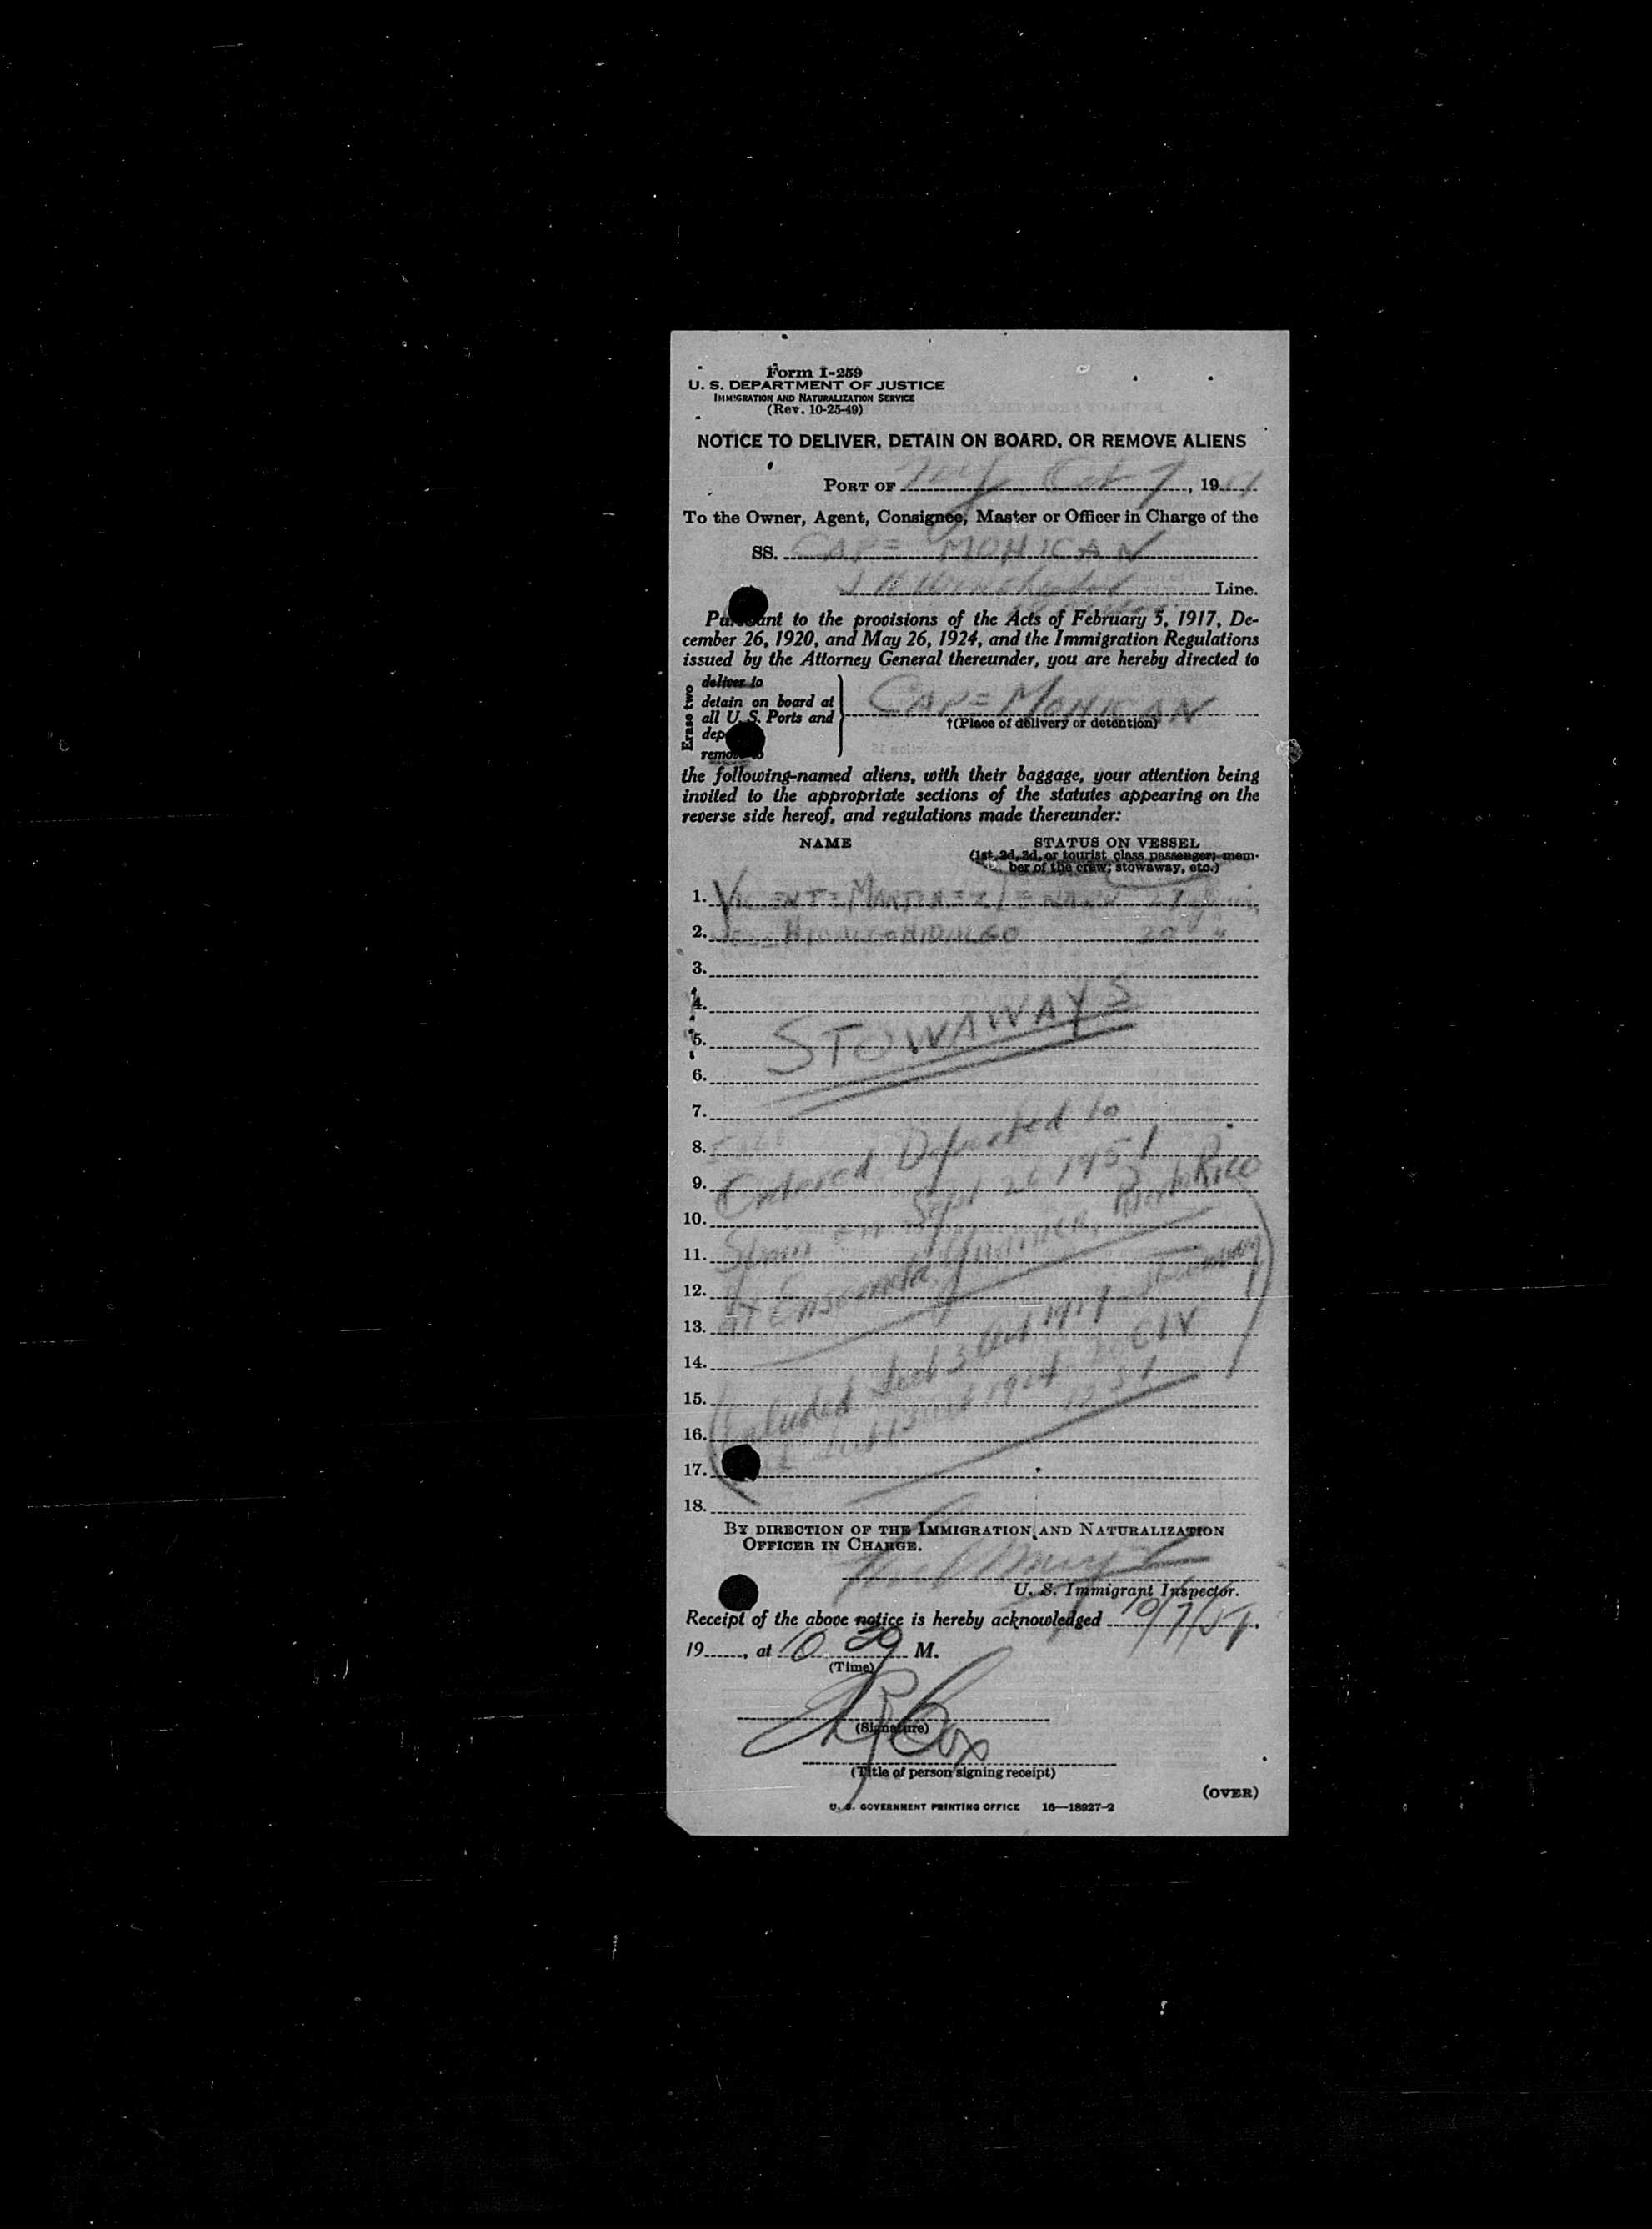 Form I-259
U. S. DEPARTMENT OF JUSTICE
IMMIGRATION AND NATURALIZATION SERVICE
(Rev. 10-25-49)
NOTICE TO DELIVER, DETAIN ON BOARD, OR REMOVE ALIENS
PORT OF NY Oct 7, 1951
To the Owner, Agent, Consignee, Master or Officer in Charge of the
SS. CAPE MOHICAN
Line.
Pursuant to the provisions of the Acts of February 5, 1917, De-
cember 26, 1920, and May 26, 1924, and the Immigration Regulations
issued by the Attorney General thereunder, you are hereby directed to
Erase two
deliver to
detain on board at
all U. S. Ports and
remove to
CAPE MOHICAN
†(Place of delivery or detention)
the following-named aliens, with their baggage, your attention being
invited to the appropriate sections of the statutes appearing on the
reverse side hereof, and regulations made thereunder:
NAME STATUS ON VESSEL
(1st, 2d, 3d, or tourist class passenger; mem-
ber of the crew; stowaway, etc.)
1. VICENTE MARTINEZ 27
2. HIDALGO 20 "
3.
4.
5. STOWAWAYS
6.
7.
8.
9. Ordered Deported to
10. Spain on Sept 26 1951
11. At Ensenada, Guanica, Puerto Rico
12.
13.
14.
15. Excluded Sect 3 Act 1917
16. Sect 13 Act 1924 no CIV
17.
18.
BY DIRECTION OF THE IMMIGRATION AND NATURALIZATION
OFFICER IN CHARGE.
U. S. Immigrant Inspector.
Receipt of the above notice is hereby acknowledged 10/7/51,
19, at 10 30 M.
(Time)
Cox
(Signature)
(Title of person signing receipt)
(OVER)
U. S. GOVERNMENT PRINTING OFFICE 16—18927-2